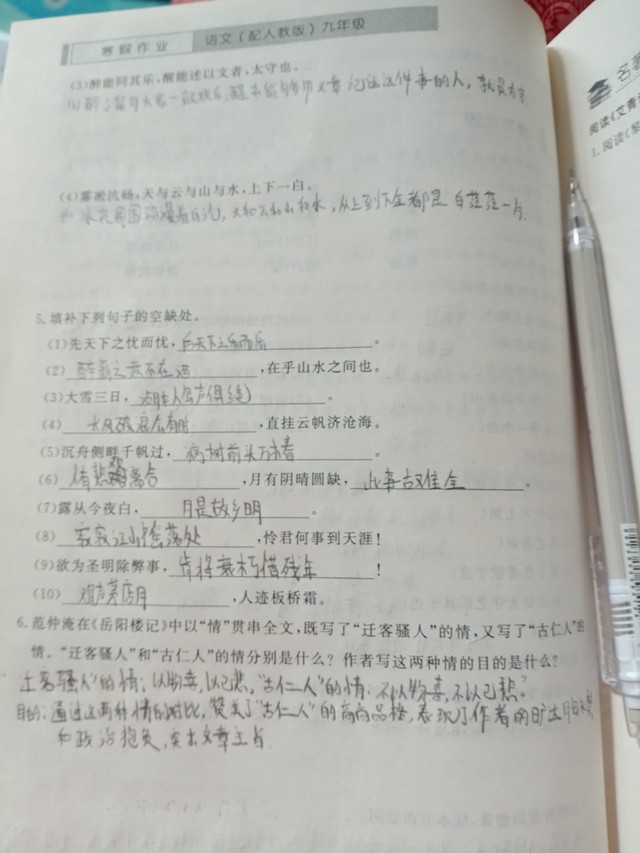 寒假作业 语文(配人教版)九年级
(3)醉能同其乐,醒能述以文者,太守也。
(4)雾凇沆砀,天与云与山与水,上下一白。
天和云和山和水,从上到下全都是白茫茫一片
5.填补下列句子的空缺处。
(1)先天下之忧而忧,后天下之乐而乐。
(2)醉翁之意不在酒,在乎山水之间也。
(3)大雪三日,湖中人鸟声俱绝。
(4)长风破浪会有时,直挂云帆济沧海。
(5)沉舟侧畔千帆过,病树前头万木春。
(6)悲欢离合,月有阴晴圆缺,此事古难全。
(7)露从今夜白,月是故乡明。
(8)寂寂江山摇落处,怜君何事到天涯!
(9)欲为圣明除弊事,肯将衰朽惜残年!
(10)鸡声茅店月,人迹板桥霜。
6.范仲淹在《岳阳楼记》中以“情”贯串全文,既写了“迁客骚人”的情,又写了“古仁人”的
情。“迁客骚人”和“古仁人”的情分别是什么?作者写这两种情的目的是什么?
迁客骚人”的情:以物喜,以己悲,“古仁人”的情:不以物喜,不以己悲”
目的:通过这两种情的对比,赞美了“古仁人”的高尚品格,表现了作者的旷达
和政治抱负,突出文章主旨
名著
阅读《艾青
1.阅读